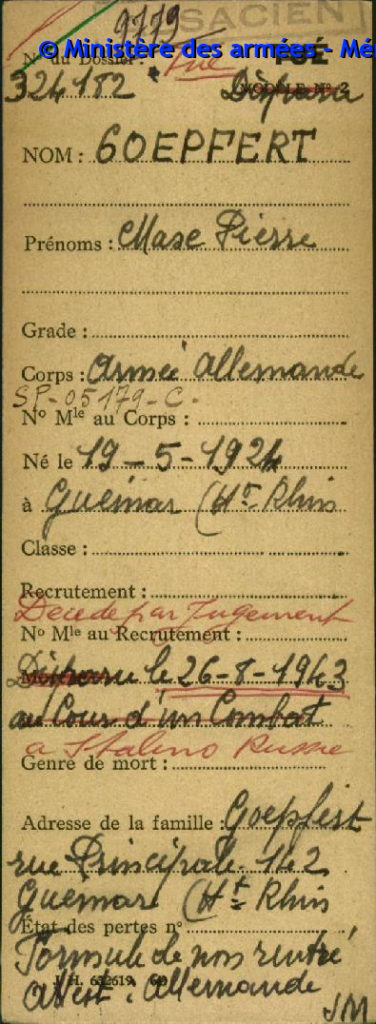 9779
ALSACIEN
© Ministère des armées - Mé
No du Dossier : Tué TUÉ
324182 Disparu
MODÈLE No 2
NOM : GOEPFERT
Prénoms : Marc Pierre
Grade :
Corps : Armée Allemande
SP-05179-C.
No Mle au Corps :
Né le 19-5-1924
à Guémar (Ht Rhin
Classe :
Recrutement :
Décédé par Jugement
No Mle au Recrutement :
Disparu le 26-8-1943
au Cour d'un Combat
a Stalino Russie
Genre de mort :
Adresse de la famille : Goepfert
rue Principale 142
Guémar (Ht Rhin
État des pertes no
Formule de non rentré
H. 632619.
Allemande
JM